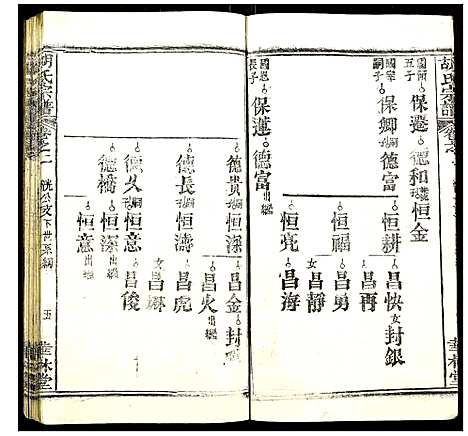 胡氏宗譜
國 五子
保暹
德和
恒金
國寀嗣子
保卿
德富
恒耕
昌快
女封銀
昌再
恒福
昌勇
女昌靜
恒亮
昌海
國恩長子
保蓮
德富出繼
德貴
恒深
昌金
封出繼
昌火出繼
德長
恒濤
昌虎
女昌琳
德久
恒意
昌俊
德橋
恒深出繼
恒意出繼
胡氏宗譜
卷之二
公支下世系綱
五
華林堂
華林堂